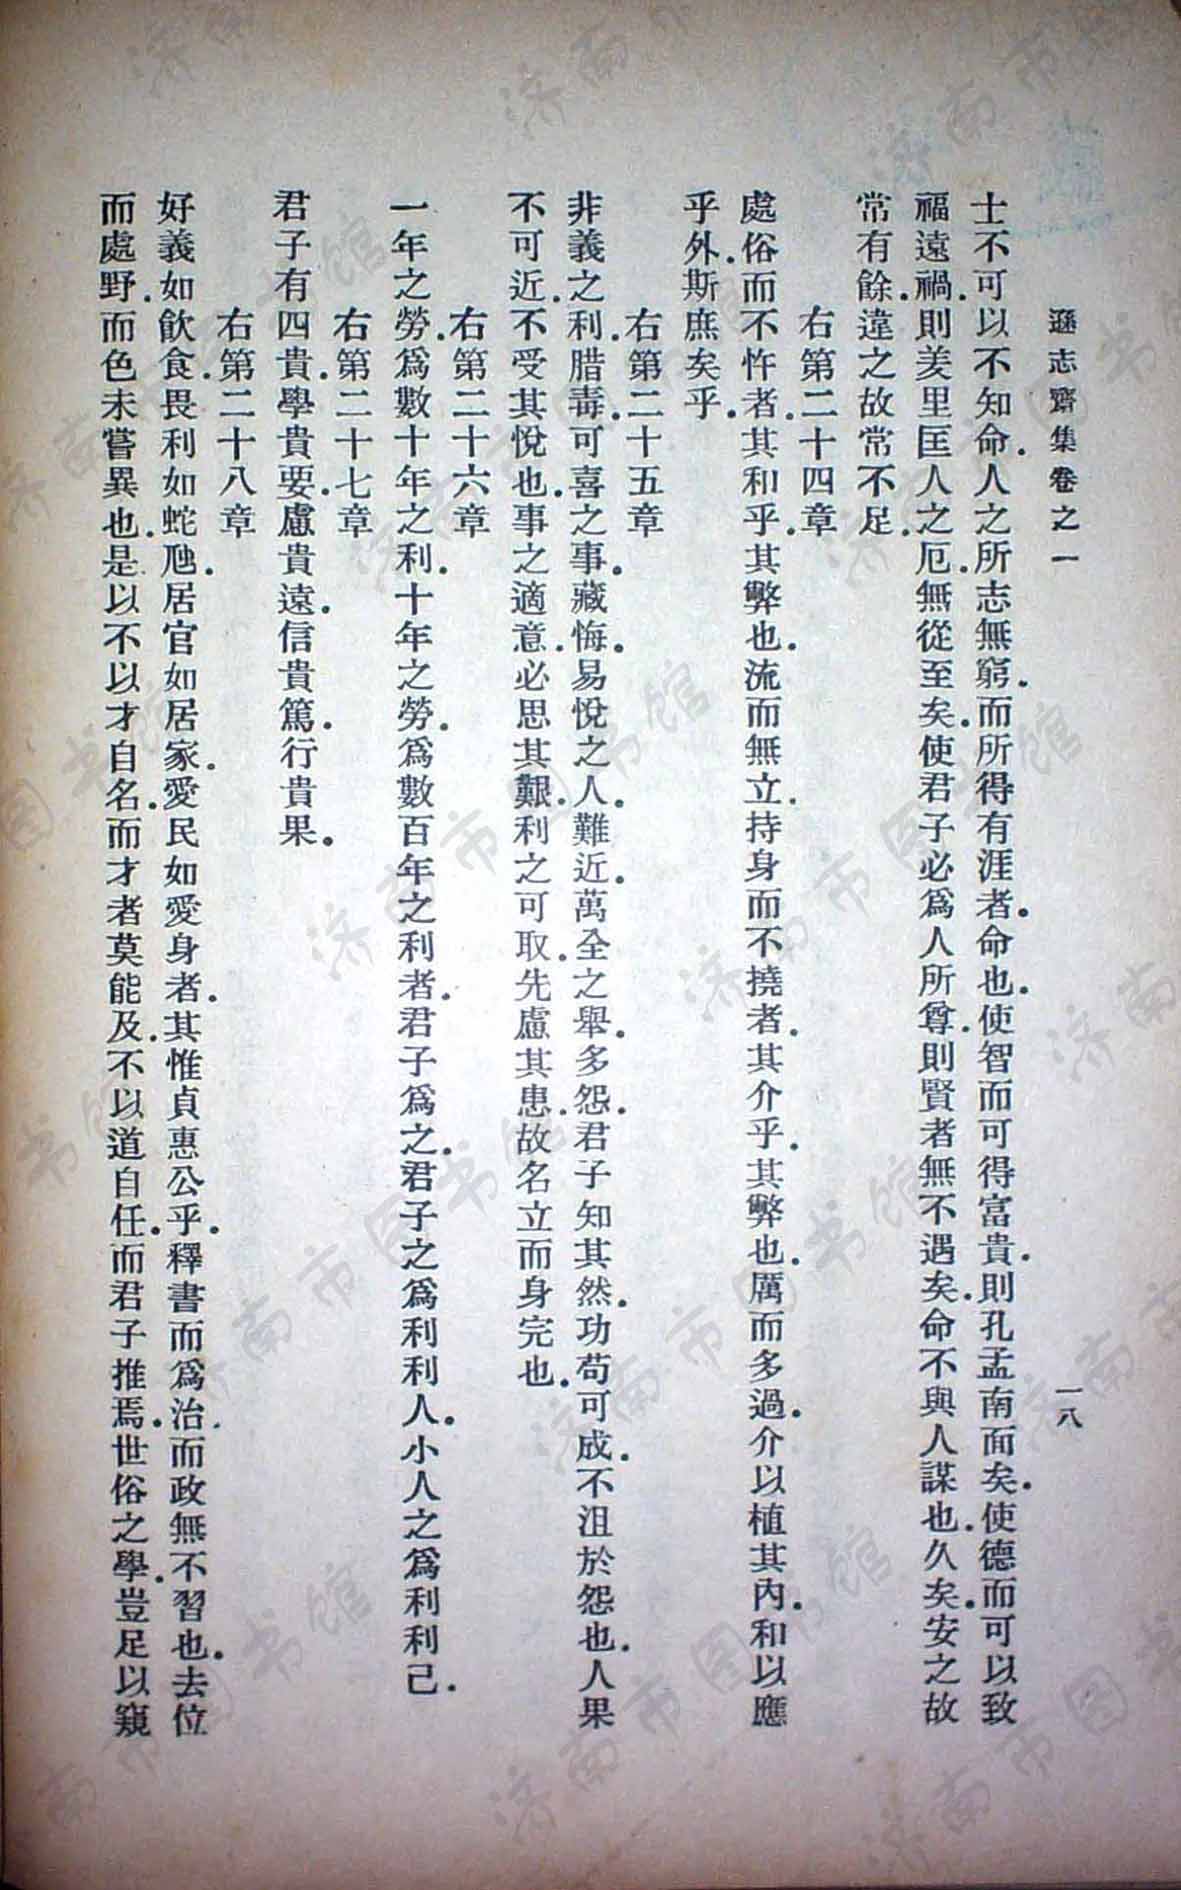 遜志齋集卷之一
一八
士不可以不知命.人之所志無窮.而所得有涯者.命也.使智而可得富貴.則孔孟南面矣.使德而可以致
福遠禍.則羑里匡人之厄.無從至矣.使君子必爲人所尊.則賢者無不遇矣.命不與人謀也.久矣.安之故
常有餘.違之故常不足.
右第二十四章
處俗而不忤者.其和乎.其弊也.流而無立.持身而不撓者.其介乎.其弊也.厲而多過.介以植其內.和以應
乎外.斯庶矣乎.
右第二十五章
非義之利.腊毒.可喜之事.藏悔.易悅之人.難近.萬全之舉.多怨.君子知其然.功苟可成.不沮於怨也.人果
不可近.不受其悅也.事之適意.必思其艱.利之可取.先慮其患.故名立而身完也.
右第二十六章
一年之勞.爲數十年之利.十年之勞.爲數百年之利者.君子爲之.君子之爲利利人.小人之爲利利己.
右第二十七章
君子有四貴.學貴要.慮貴遠.信貴篤.行貴果.
右第二十八章
好義如飲食.畏利如蛇虺.居官如居家.愛民如愛身者.其惟貞惠公乎.釋書而爲治.而政無不習也.去位
而處野.而色未嘗異也.是以不以才自名.而才者莫能及.不以道自任.而君子推焉.世俗之學.豈足以窺
济南市图书馆